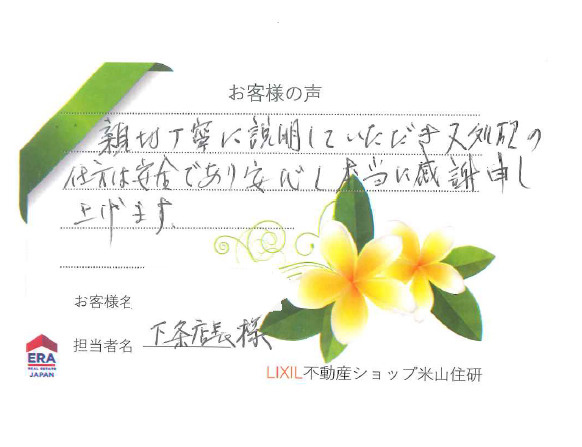 お客様の声
親切丁寧に説明していただき又処理の
仕方は安全であり安心し本当に感謝申し
上げます.
お客様名
担当者名 下条店長様
ERA
REAL ESTATE
JAPAN
LIXIL不動産ショップ米山住研